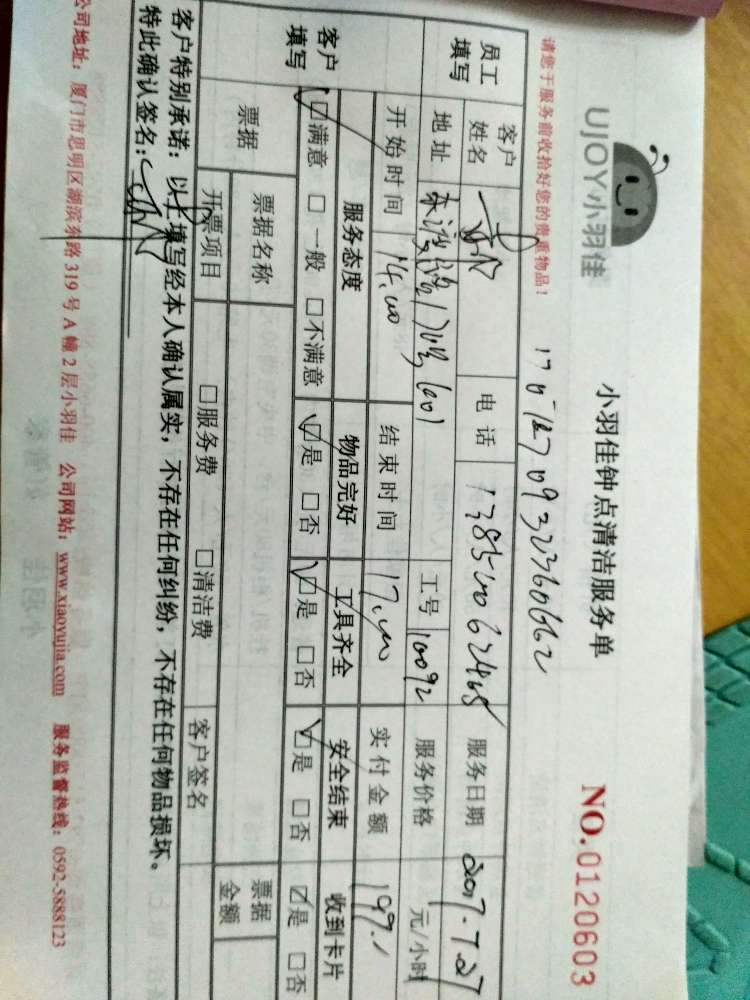 UJOY小羽佳
小羽佳钟点清洁服务单
NO.0120603
请您于服务前收拾好您的贵重物品！
员工填写
客户姓名
电话
服务日期 2017.7.27
地址
工号 10092
服务价格 元/小时
开始时间 14:00
结束时间 17:00
实付金额 199.1
客户填写
服务态度 物品完好 工具齐全 安全结束 收到卡片
☑满意 □一般 □不满意 ☑是 □否 ☑是 □否 ☑是 □否 ☑是 □否
票据
票据名称
票据金额
开票项目 □服务费 □清洁费 客户签名
客户特别承诺：以上填写经本人确认属实，不存在任何纠纷，不存在任何物品损坏。
特此确认签名：
公司地址：厦门市思明区湖滨东路 319 号 A 幢 2 层小羽佳 公司网站：www.xiaoyujia.com 服务监督热线：0592-5888123